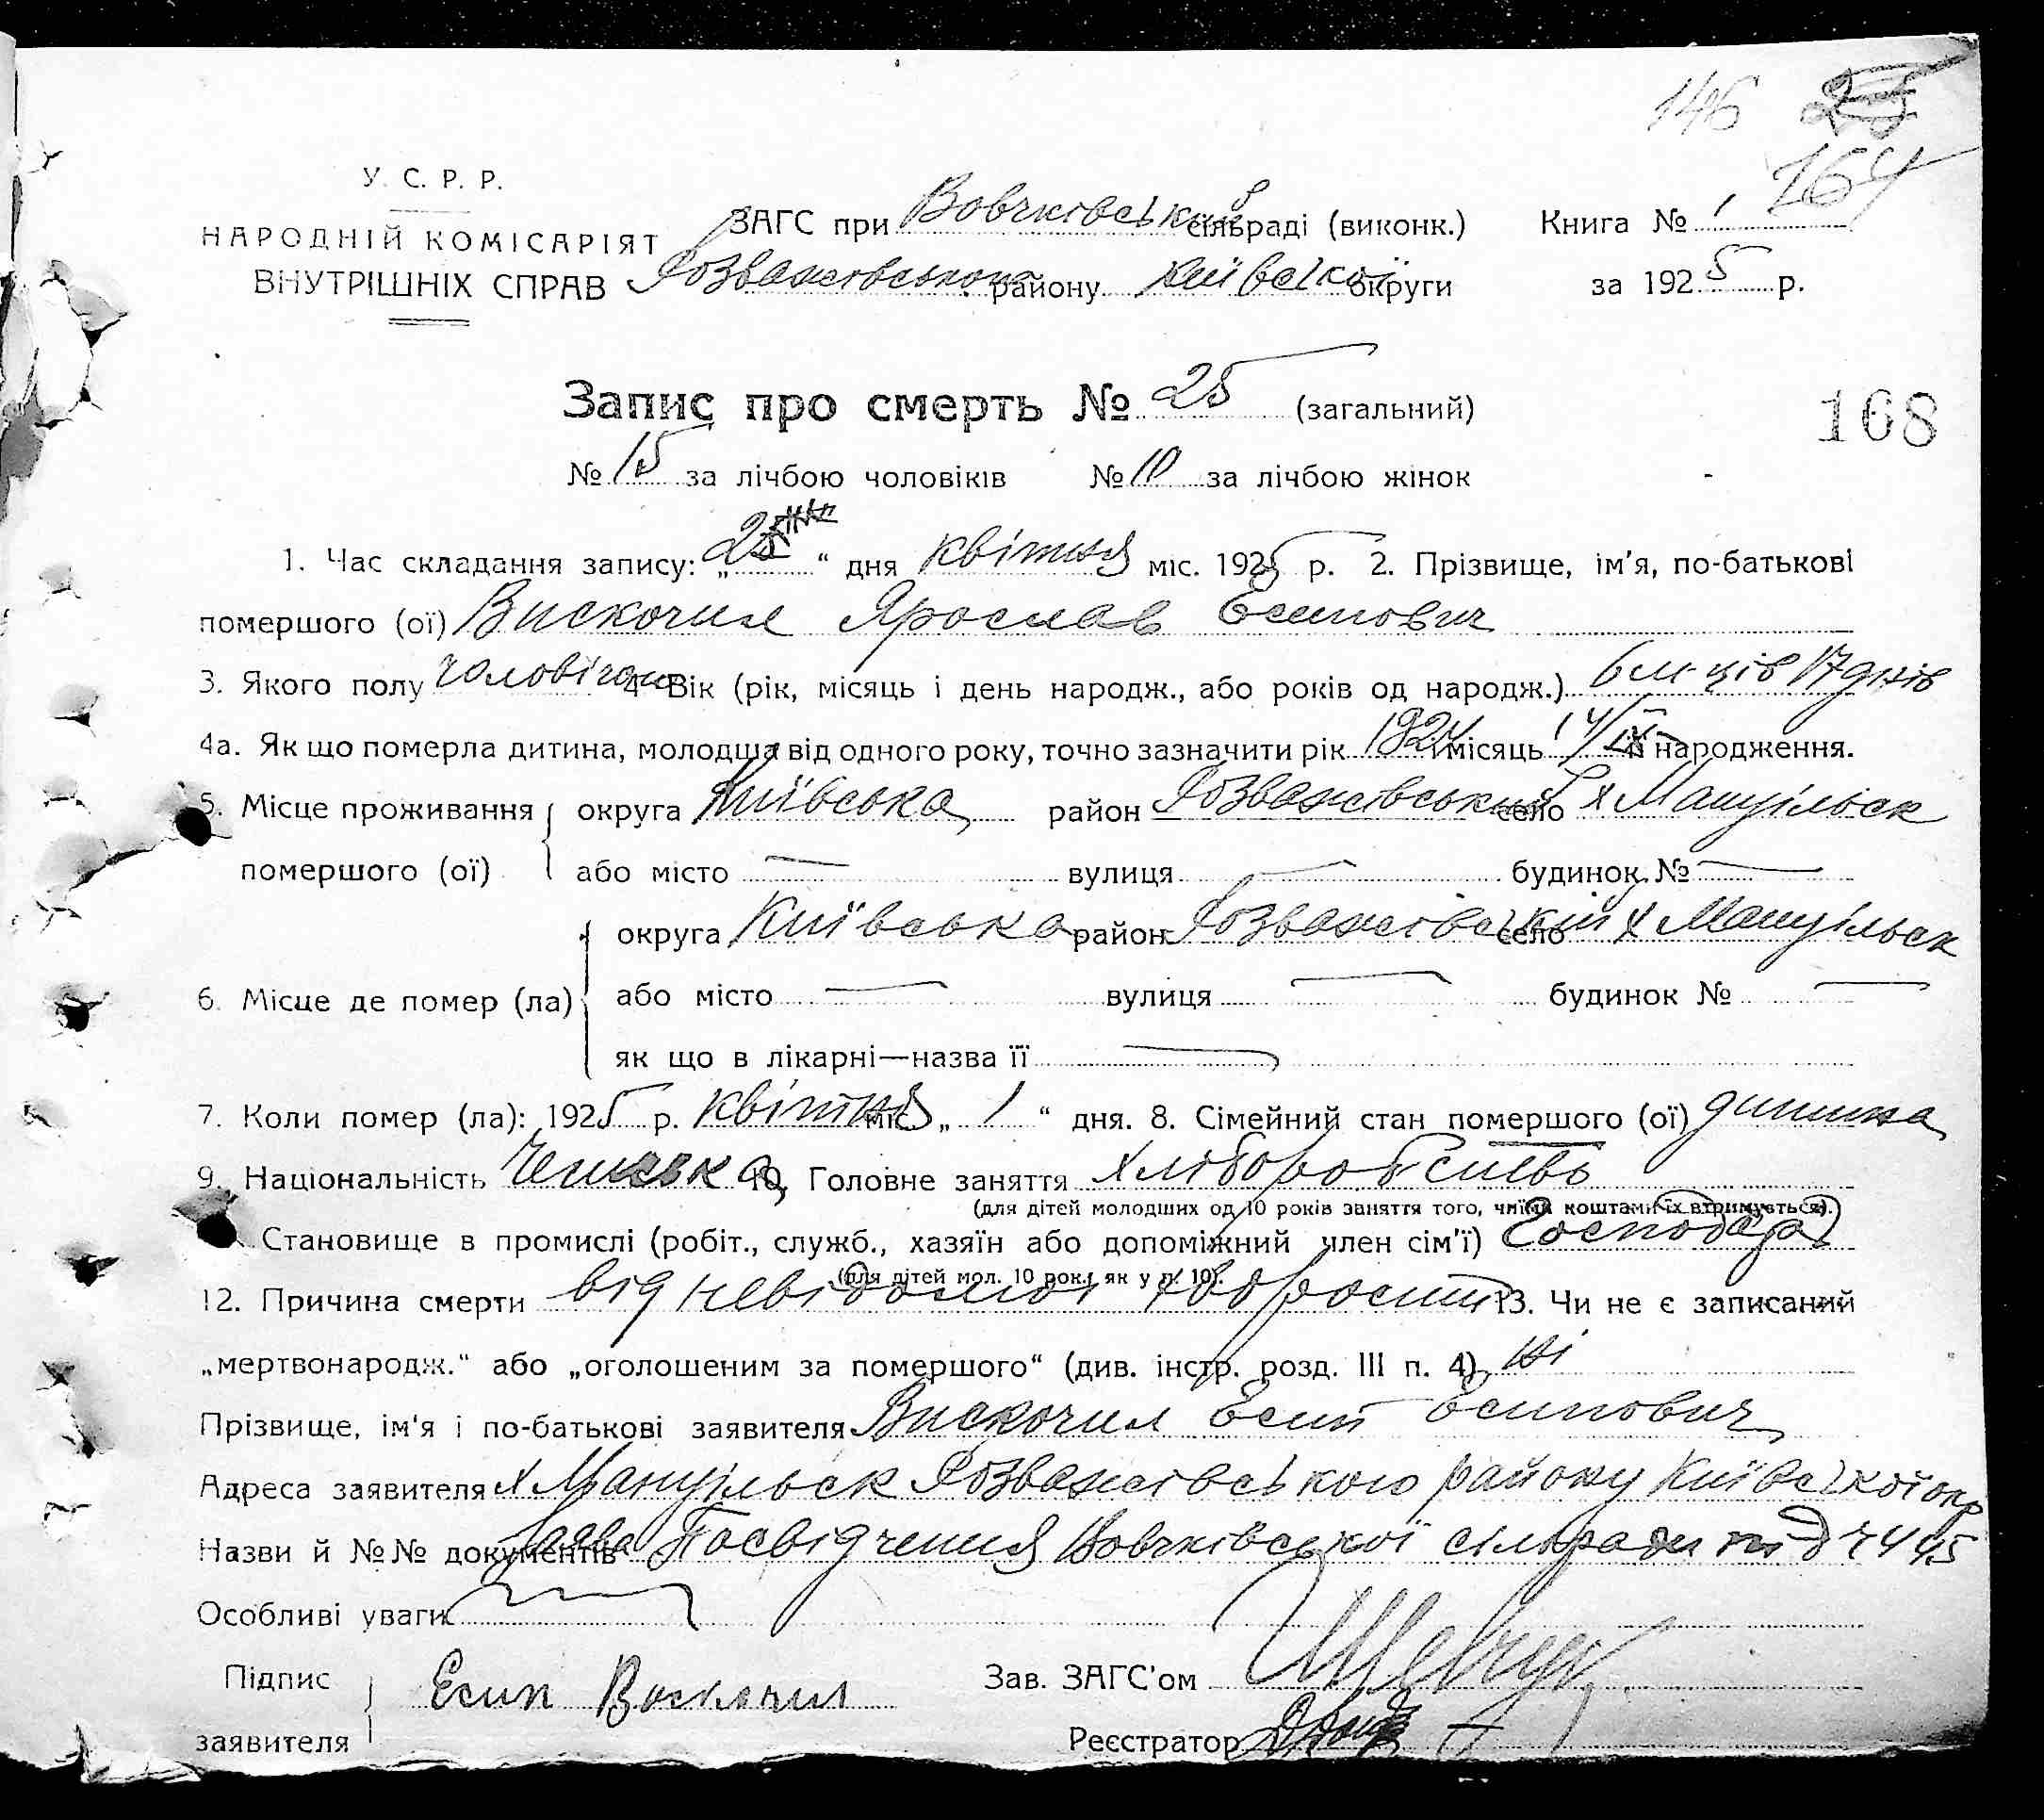 146 25
164
У. С. Р. Р.
НАРОДНІЙ КОМІСАРІЯТ
ВНУТРІШНІХ СПРАВ
ЗАГС при Вовчківській сільраді (виконк.) Книга № 1
Розважівського району Київської округи за 1925 р.
Запис про смерть № 25 (загальний)
168
№ 15 за лічбою чоловіків № 10 за лічбою жінок
1. Час складання запису: „25“ дня квітня міс. 1925 р. 2. Прізвище, ім'я, по-батькові
помершого (ої) Вискочил Ярослав Есипович
3. Якого полу чоловічого 4. Вік (рік, місяць і день народж., або років од народж.) 6 м-ців 17 днів
4а. Як що померла дитина, молодша від одного року, точно зазначити рік 1924 місяць 14/IX й народження.
5. Місце проживання округа Київська район Розважівський село х Мануільск
помершого (ої) або місто — вулиця — будинок № —
округа Київська район Розважівський село х Мануільск
6. Місце де помер (ла) або місто — вулиця — будинок № —
як що в лікарні—назва її —
7. Коли помер (ла): 1925 р. квітня міс. „1“ дня. 8. Сімейний стан помершого (ої) дитина
9. Національність Чешська 10. Головне заняття хлібороб
(для дітей молодших од 10 років заняття того, чиїми коштами їх втримується).
Становище в промислі (робіт., служб., хазяїн або допоміжний член сім'ї) Господар
(для дітей мол. 10 рок., як у п. 10).
12. Причина смерти від невідомої хворости 13. Чи не є записаний
„мертвонародж.“ або „оголошеним за помершого“ (див. інстр. розд. III п. 4) ні
Прізвище, ім'я і по-батькові заявителя Вискочил Есип Есипович
Адреса заявителя х Мануільск Розважівського району Київської окр
Назви й №№ документів Заява Посвідчення Вовчківської сільради
Особливі уваги
Підпис Есип Вискочил Зав. ЗАГС'ом Шевчук
заявителя Реєстратор